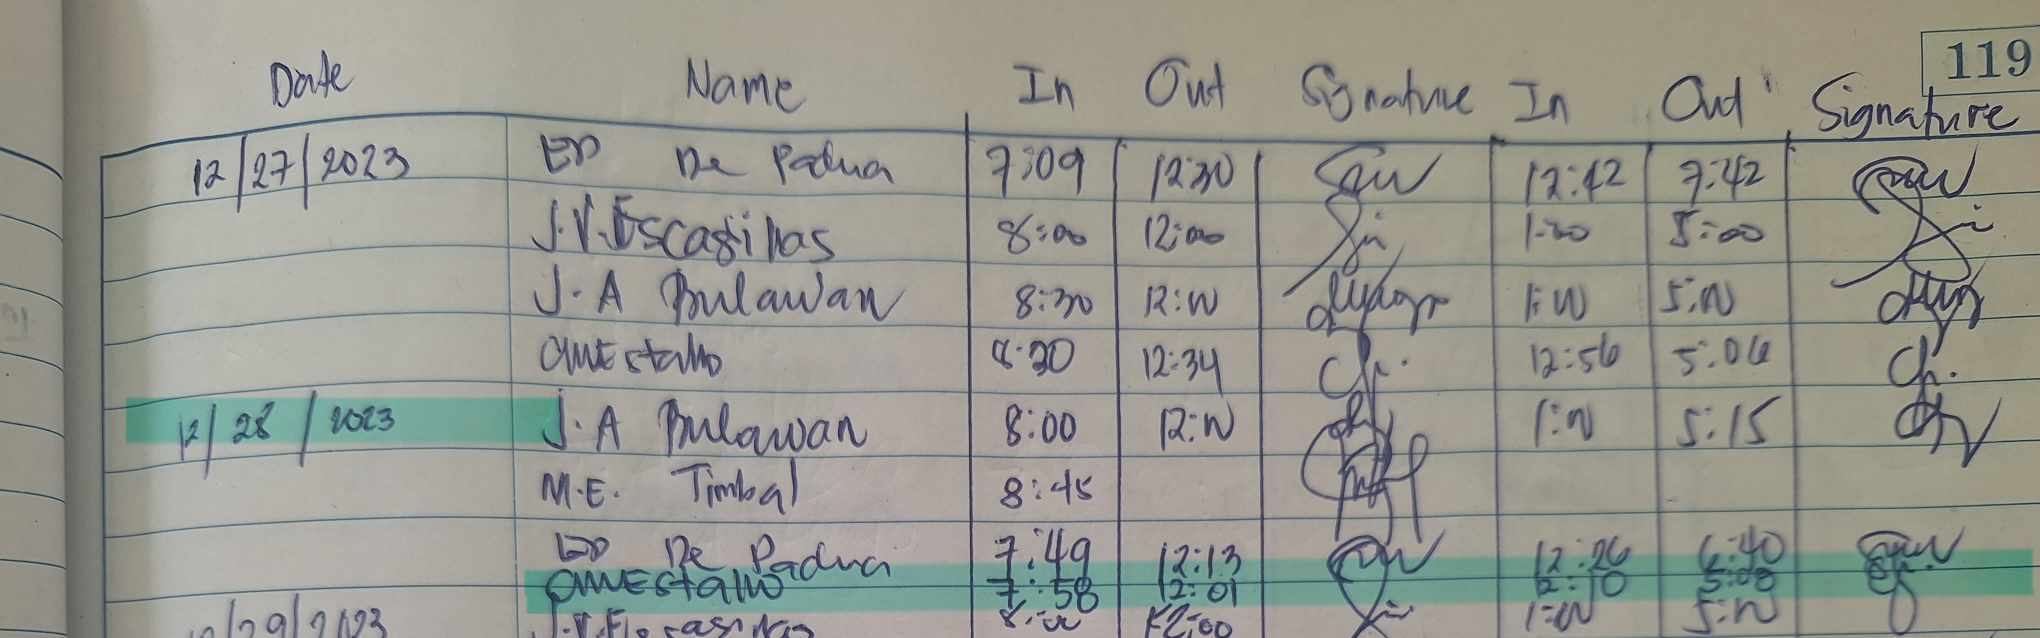 119
Date Name In Out Signature In Out Signature
12/27/2023 ED De Padua 7:09 12:30 12:42 7:42
J.V. Escasinas 8:00 12:00 1:00 5:00
J.A Bulawan 8:30 12:00 1:00 5:00
8:20 12:34 12:56 5:06
12/28/2023 J.A Bulawan 8:00 12:00 1:00 5:15
M.E. Timbal 8:45
ED De Padua 7:49 12:13 12:26 6:40
7:58 12:01 12:10 5:08
12/29/2023 8:00 12:00 1:00 5:00